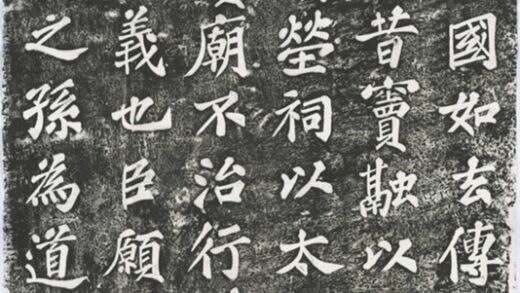 國如去傳
昔竇融以
塋祠以太
廟不治行
義也臣願
之孫為道